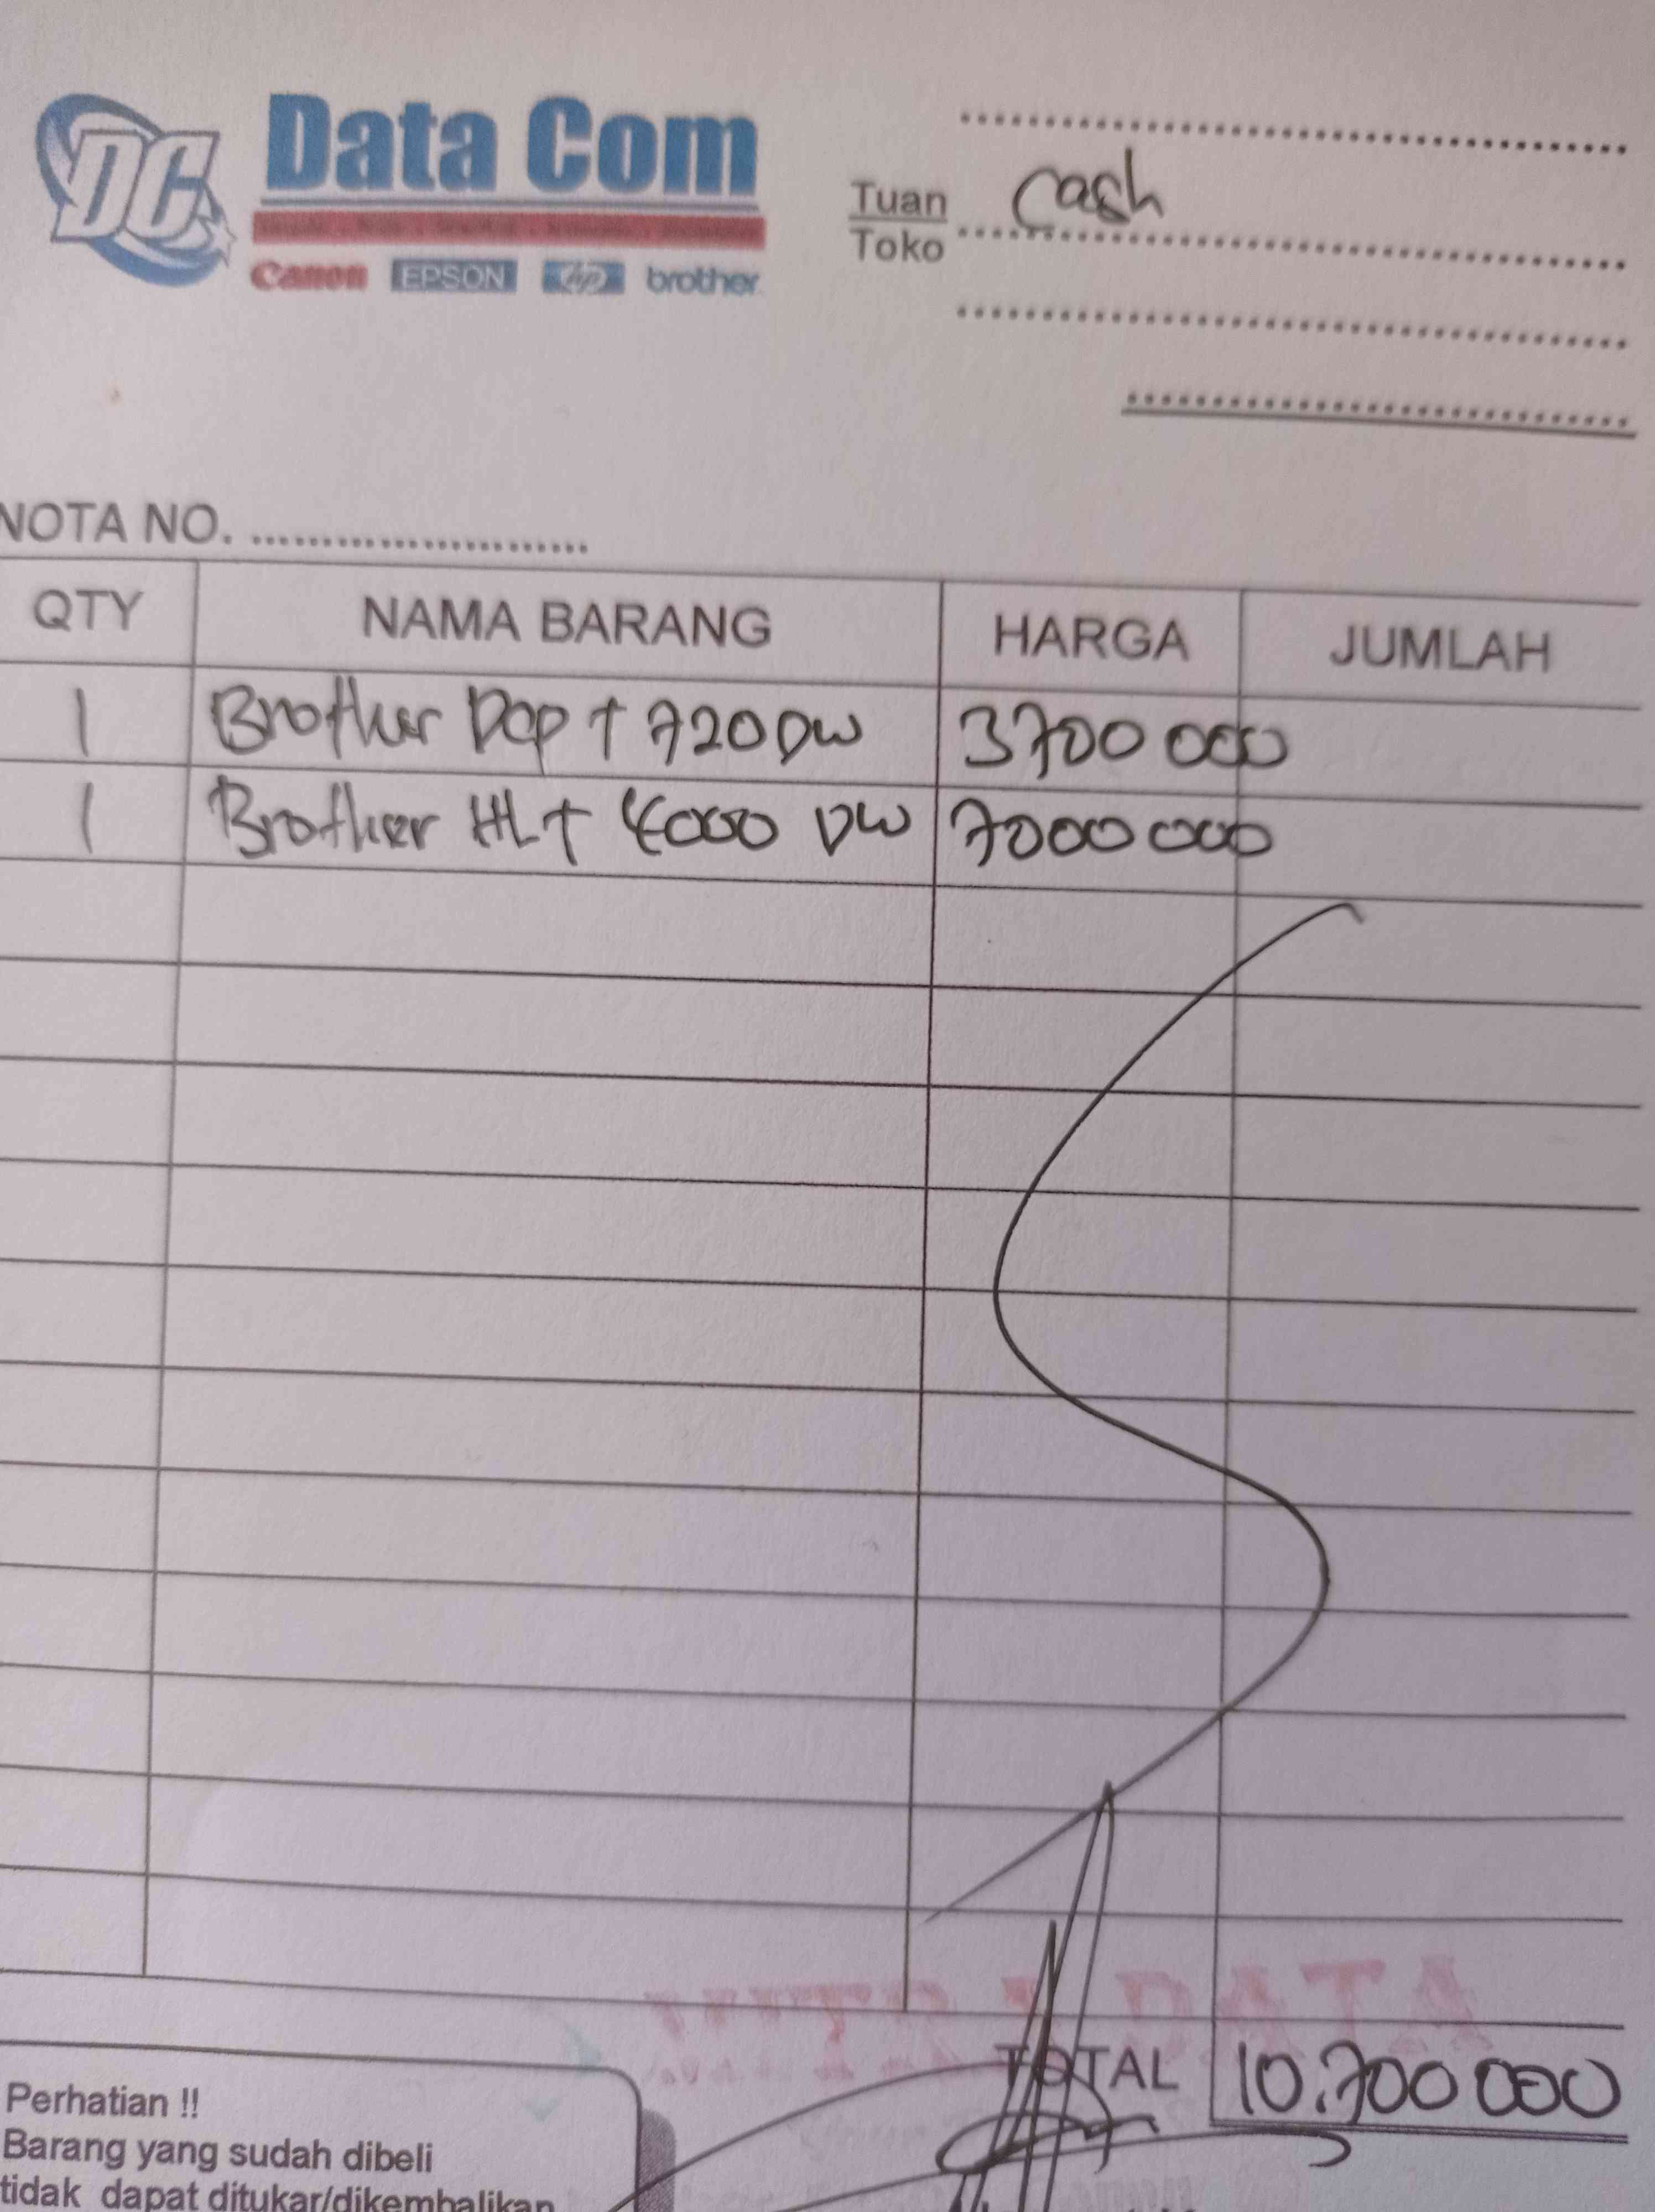 DC Data Com
Canon EPSON hp brother
Tuan Cash
Toko
NOTA NO.
QTY NAMA BARANG HARGA JUMLAH
1 Brother Dcp T 720 DW 3700 000
1 Brother HL T 4000 DW 7000 000
TOTAL 10.700 000
Perhatian !!
Barang yang sudah dibeli
tidak dapat ditukar/dikembalikan